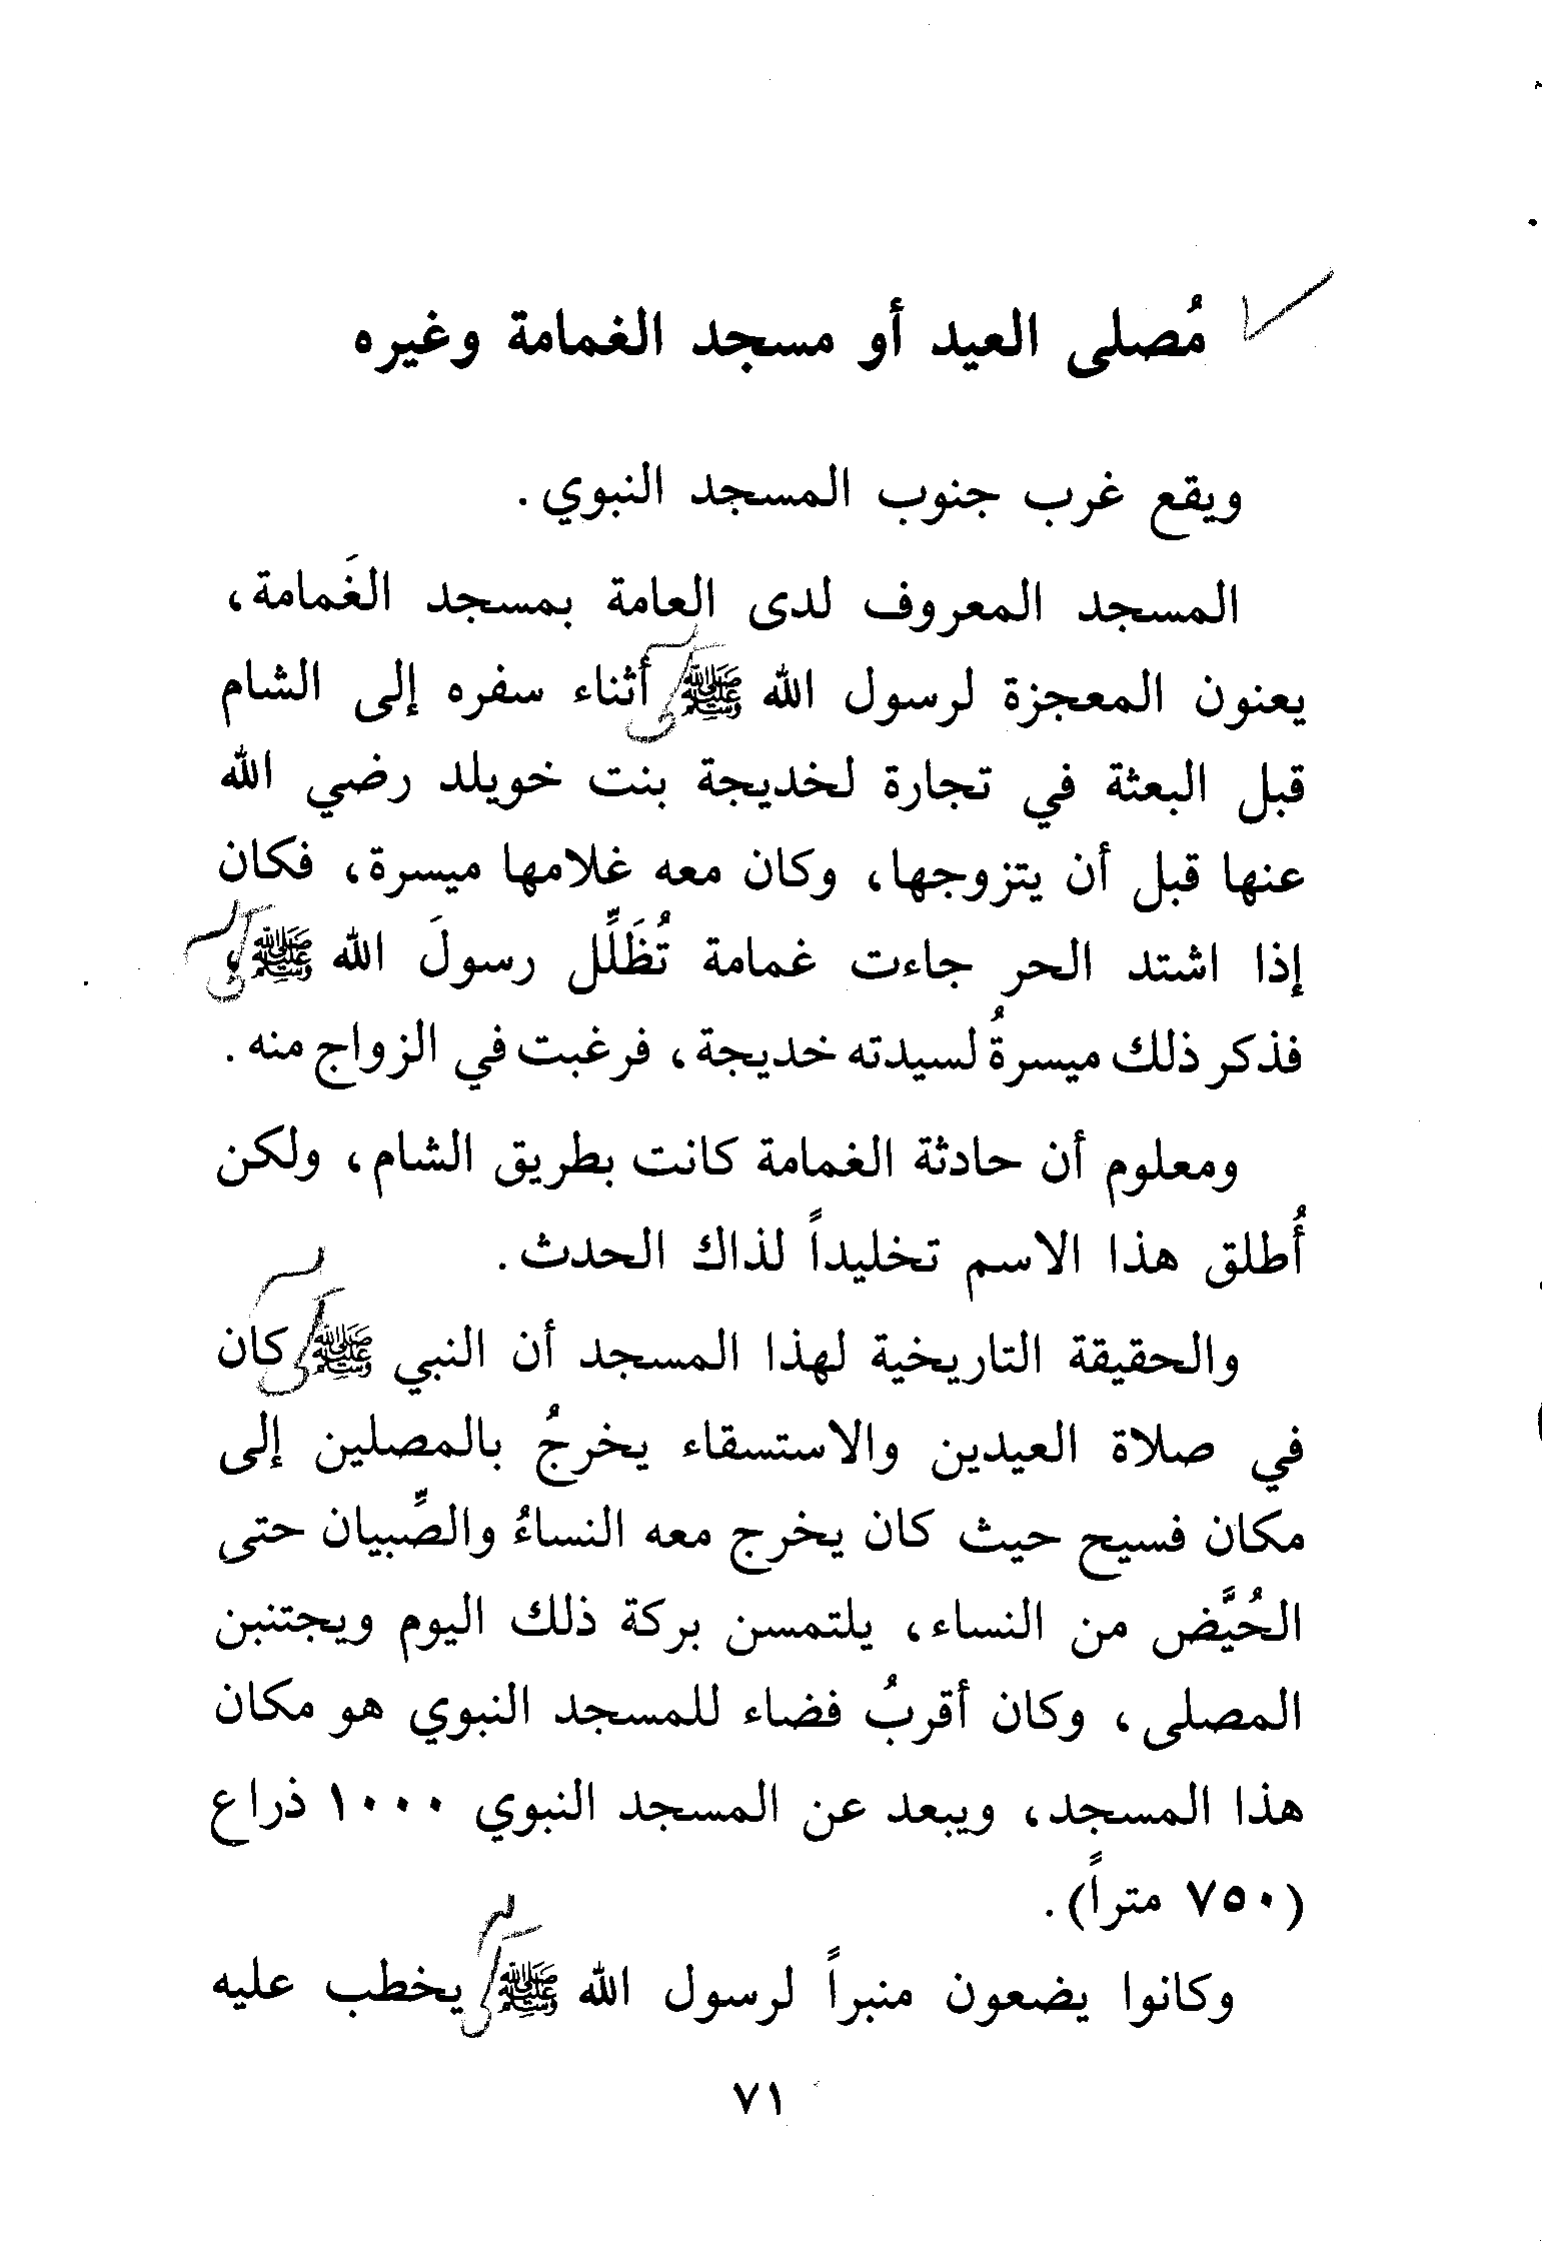 مُصلى العيد أو مسجد الغمامة وغيره
ويقع غرب جنوب المسجد النبوي.
المسجد المعروف لدى العامة بمسجد الغَمامة،
يعنون المعجزة لرسول الله ﷺ أثناء سفره إلى الشام
قبل البعثة في تجارة لخديجة بنت خويلد رضي الله
عنها قبل أن يتزوجها، وكان معه غلامها ميسرة، فكان
إذا اشتد الحر جاءت غمامة تُظَلِّل رسولَ الله ﷺ،
فذكر ذلك ميسرةُ لسيدته خديجة، فرغبت في الزواج منه.
ومعلوم أن حادثة الغمامة كانت بطريق الشام، ولكن
أُطلق هذا الاسم تخليداً لذاك الحدث.
والحقيقة التاريخية لهذا المسجد أن النبي ﷺ كان
في صلاة العيدين والاستسقاء يخرجُ بالمصلين إلى
مكان فسيح حيث كان يخرج معه النساءُ والصِّبيان حتى
الحُيَّض من النساء، يلتمسن بركة ذلك اليوم ويجتنبن
المصلى، وكان أقربُ فضاء للمسجد النبوي هو مكان
هذا المسجد، ويبعد عن المسجد النبوي ١٠٠٠ ذراع
(٧٥٠ متراً).
وكانوا يضعون منبراً لرسول الله ﷺ يخطب عليه
٧١